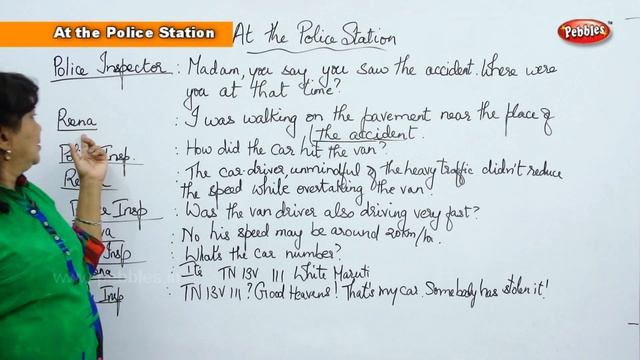 At the Police Station
At the Police Station
Pebbles
Police Inspector : Madam, you say you saw the accident. Where were
you at that time?
Reena : I was walking on the pavement near the place of
the accident.
Police Insp. : How did the car hit the van?
: The car driver, unmindful of the heavy traffic didn't reduce
the speed while overtaking the van.
Insp : Was the van driver also driving very fast?
: No his speed may be around 20km/hr.
Insp : What's the car number?
: It's TN 13V 111 White Maruti
Insp : TN 13V 111? Good Heavens! That's my car. Somebody has stolen it!